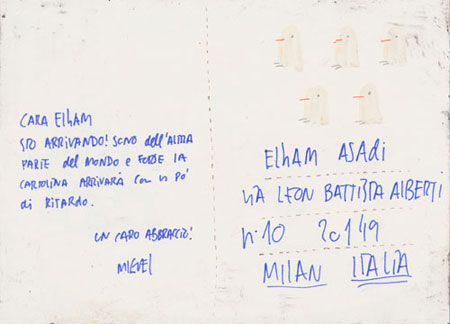 CARA ElHAM
STO ARRIVANDO! SONO dell'ALTRA
PARTE del MONDO e FORSE lA
CARTOlINA ARRIVARÀ CON UN PO'
di RITARDO.
UN CARO ABBRACCIO!
MIGUEL
ElHAM ASAdi
VIA LEON BATTISTA ALBERTI
N·10 20149
MILAN ITALIA